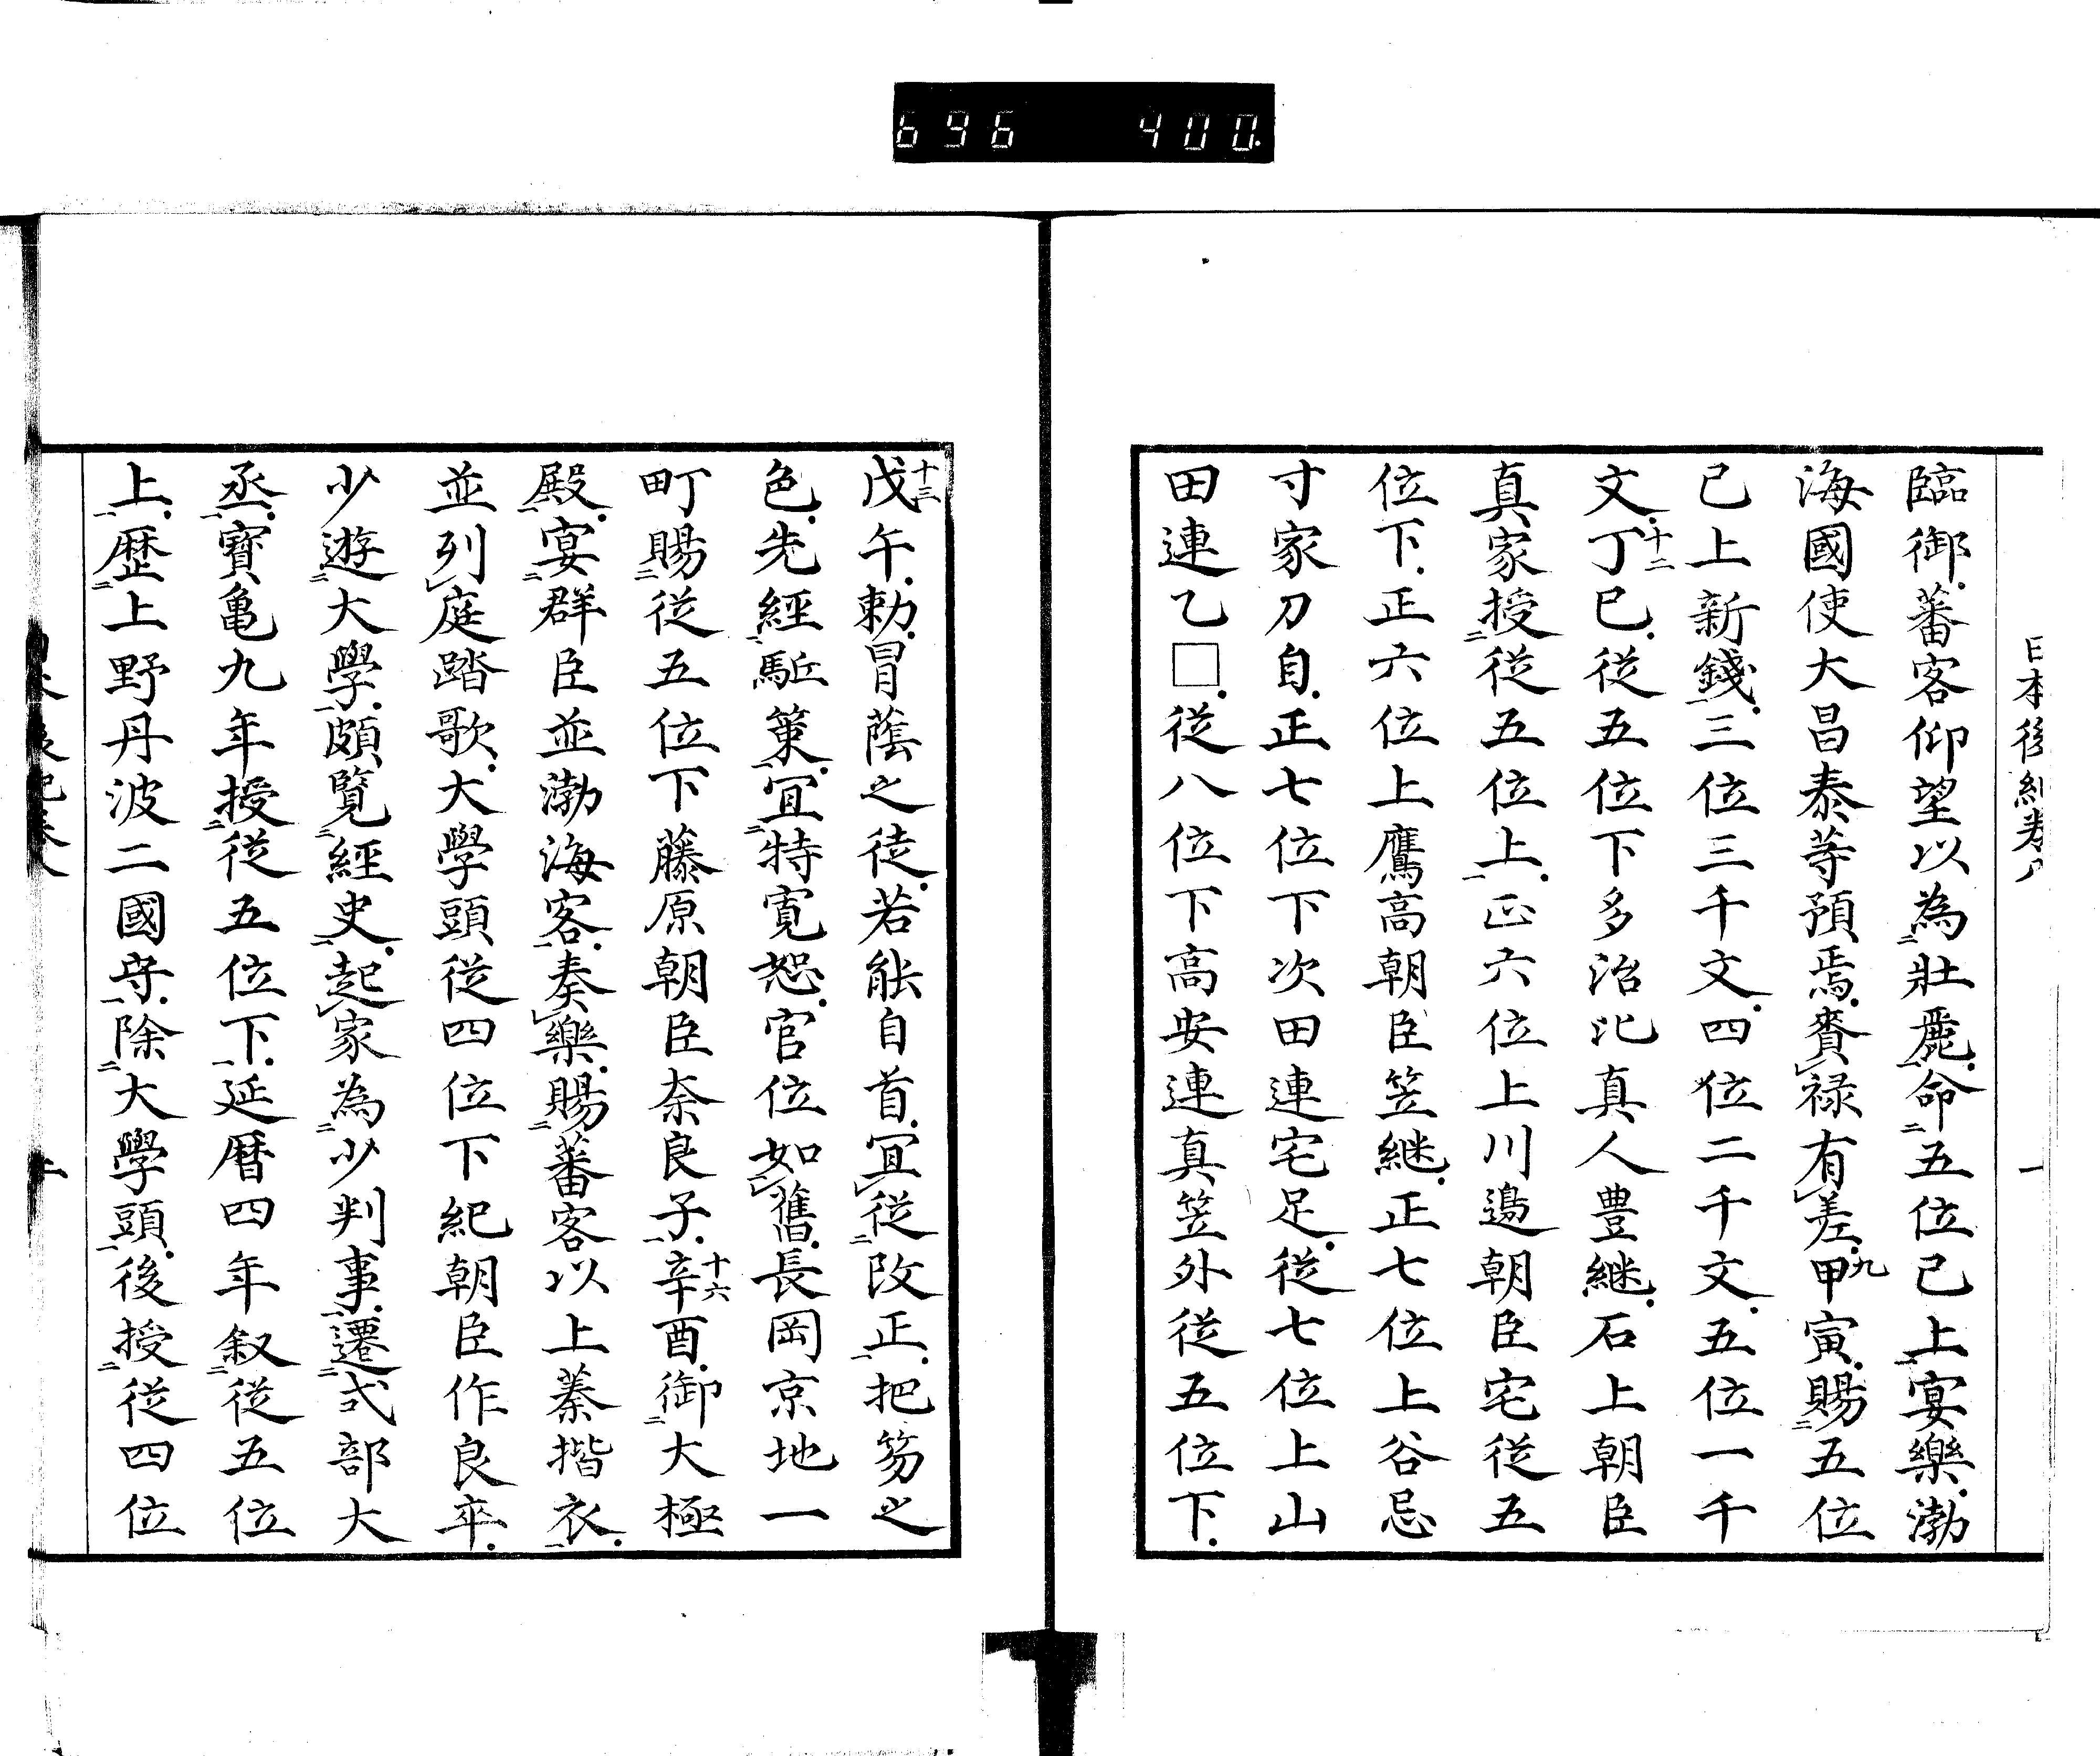 696 400
日本後紀巻八 一
臨御。蕃客仰望以為二壮麗一。命二五位已上一宴樂。渤
海國使大昌泰等預焉。賚レ禄有レ差。甲九寅。賜二五位
已上新錢一。三位三千文。四位二千文。五位一千
文。丁十二巳。従五位下多治比真人豊継。石上朝臣
真家授二従五位上一。正六位上川邉朝臣宅従五
位下。正六位上鷹高朝臣笠継。正七位上谷忌
寸家刀自。正七位下次田連宅足。従七位上山
田連乙□。従八位下高安連真笠外従五位下。
戊十三午。勅。冒蔭之徒。若能自首。宜レ従二改正一。把笏之
色。先經二駈策一。宜二特寛恕一。官位如レ舊。長岡京地一
町賜二従五位下藤原朝臣奈良子一。辛十六酉。御二大極
殿一。宴二群臣並渤海客一。奏レ樂。賜二蕃客以上蓁揩衣一。
並列レ庭踏歌。大學頭従四位下紀朝臣作良卒。
少遊二大學一。頗覧二經史一。起レ家為二少判事一。遷二式部大
丞一。寳亀九年授二従五位下一。延暦四年叙二従五位
上一。歴二上野丹波二國守一。除二大學頭一。後授二従四位